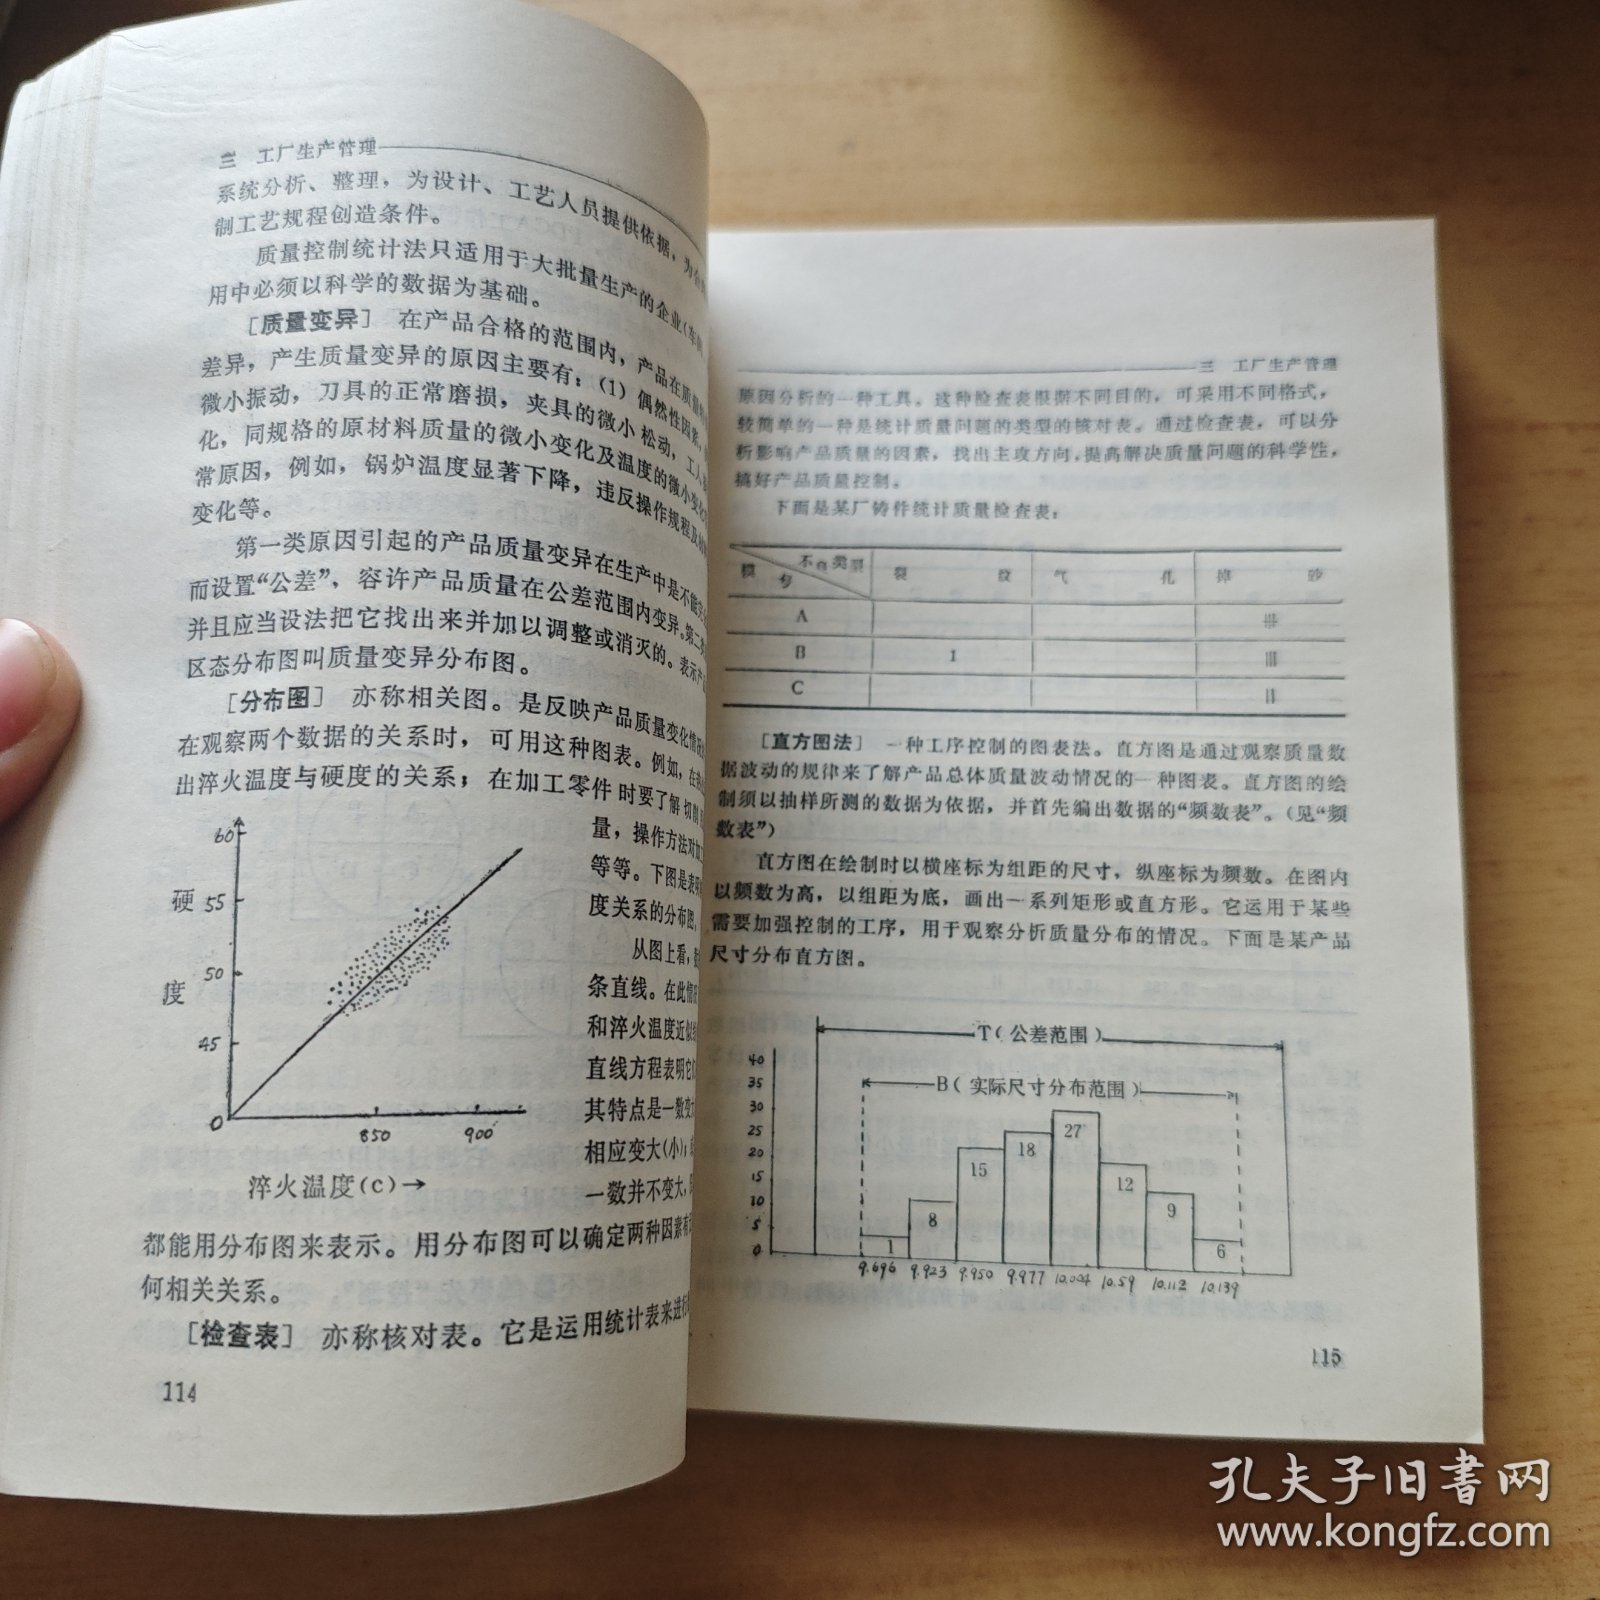 三 工厂生产管理
系统分析、整理，为设计、工艺人员提供依据，为
制工艺规程创造条件。
质量控制统计法只适用于大批量生产的企业（车间
用中必须以科学的数据为基础。
［质量变异］ 在产品合格的范围内，产品在质量
差异，产生质量变异的原因主要有：（1）偶然性因素，
微小振动，刀具的正常磨损，夹具的微小松动，工人
化，同规格的原材料质量的微小变化及温度的微小变化
常原因，例如，锅炉温度显著下降，违反操作规程及
变化等。
第一类原因引起的产品质量变异在生产中是不能
而设置“公差”，容许产品质量在公差范围内变异。第二
并且应当设法把它找出来并加以调整或消灭的。表示产
区态分布图叫质量变异分布图。
［分布图］ 亦称相关图。是反映产品质量变化情况
在观察两个数据的关系时，可用这种图表。例如，在
出淬火温度与硬度的关系；在加工零件时要了解切削
量，操作方法对加
等等。下图是表明
度关系的分布图，
从图上看，
条直线。在此情
和淬火温度近似
直线方程表明它
其特点是一数变大
相应变大（小）；
一数并不变大，
60
55
50
45
0
硬
度
850 900
淬火温度(c)→
都能用分布图来表示。用分布图可以确定两种因素有
何相关关系。
［检查表］ 亦称核对表。它是运用统计表来进行
114
三 工厂生产管理
原因分析的一种工具。这种检查表根据不同目的，可采用不同格式，
较简单的一种是统计质量问题的类型的核对表。通过检查表，可以分
析影响产品质量的因素，找出主攻方向，提高解决质量问题的科学性，
搞好产品质量控制。
下面是某厂铸件统计质量检查表：
类型
模 裂 纹 气 孔 掉 砂
A
B
C
［直方图法］ 一种工序控制的图表法。直方图是通过观察质量数
据波动的规律来了解产品总体质量波动情况的一种图表。直方图的绘
制须以抽样所测的数据为依据，并首先编出数据的“频数表”。（见“频
数表”）
直方图在绘制时以横座标为组距的尺寸，纵座标为频数。在图内
以频数为高，以组距为底，画出一系列矩形或直方形。它运用于某些
需要加强控制的工序，用于观察分析质量分布的情况。下面是某产品
尺寸分布直方图。
T（公差范围）
B（实际尺寸分布范围）
40
35
30
25
20
15
10
5
0
1 8 15 18 27 12 9 6
9.696 9.923 9.950 9.977 10.004 10.59 10.112 10.139
115
孔夫子旧书网
www.kongfz.com